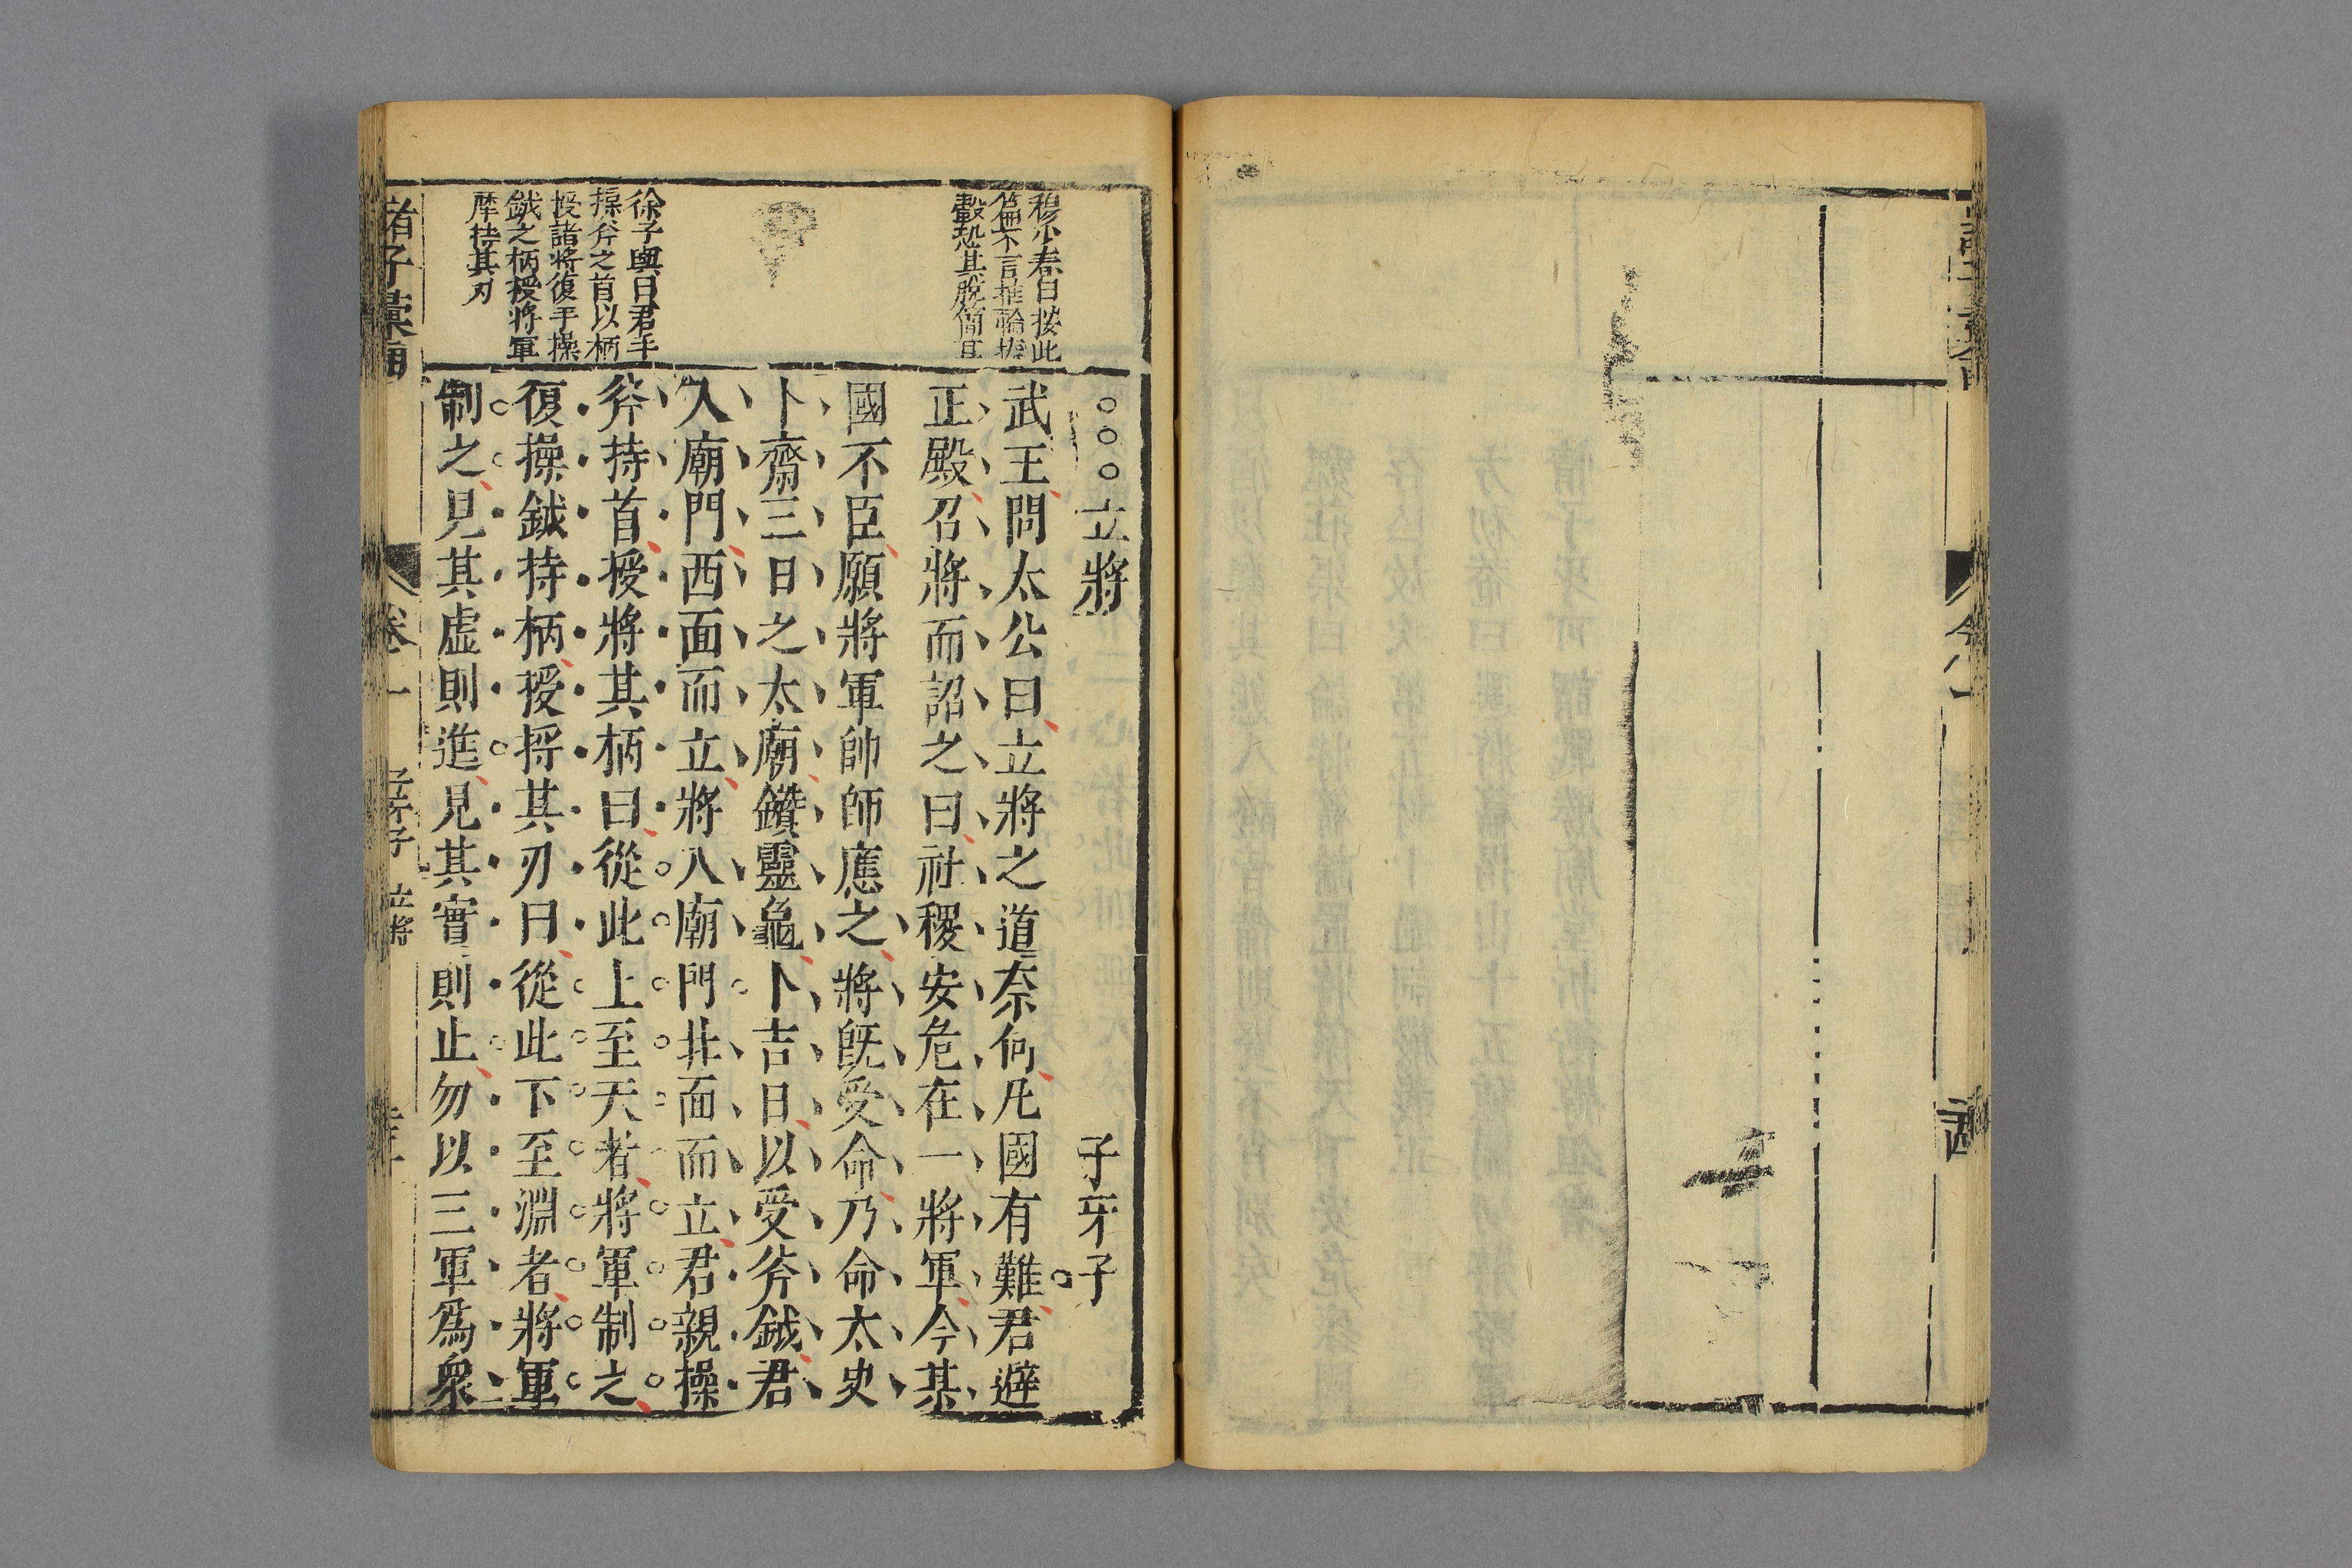 ○○○立將 子牙子
武王問太公曰立將之道奈何凡國有難君避
正殿召將而詔之曰社稷安危在一將軍今某
國不臣願將軍帥師應之將旣受命乃命太史
卜齋三日之太廟鑽靈龜卜吉日以受斧鉞君
入廟門西面而立將入廟門北面而立君親操
斧持首授將其柄曰從此上至天者將軍制之
復操鉞持柄授將其刃曰從此下至淵者將軍
制之見其虛則進見其實則止勿以三軍爲衆
穆少春曰按此
篇不言推輪捧
轂恐其脫簡耳
徐子與曰君手
操斧之首以柄
授諸將復手操
鉞之柄授將軍
摩持其刃
諸子彙函
卷一
子牙子 立將